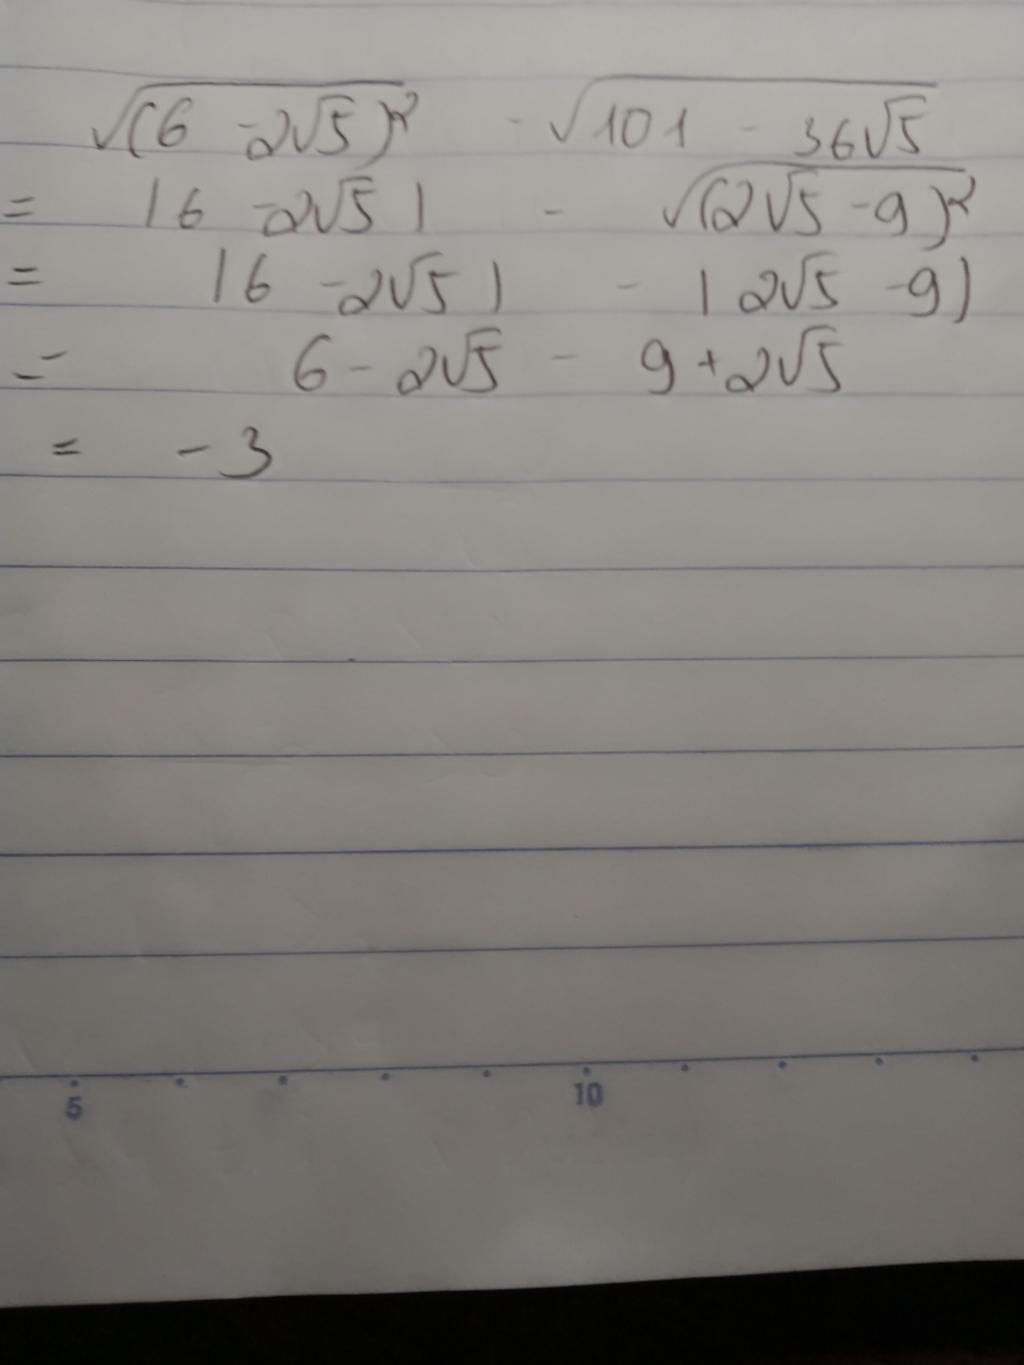 √(6 - 2√5)² - √101 - 36√5
= |6 - 2√5| - √(2√5 - 9)²
= |6 - 2√5| - |2√5 - 9|
= 6 - 2√5 - 9 + 2√5
= - 3
5 10